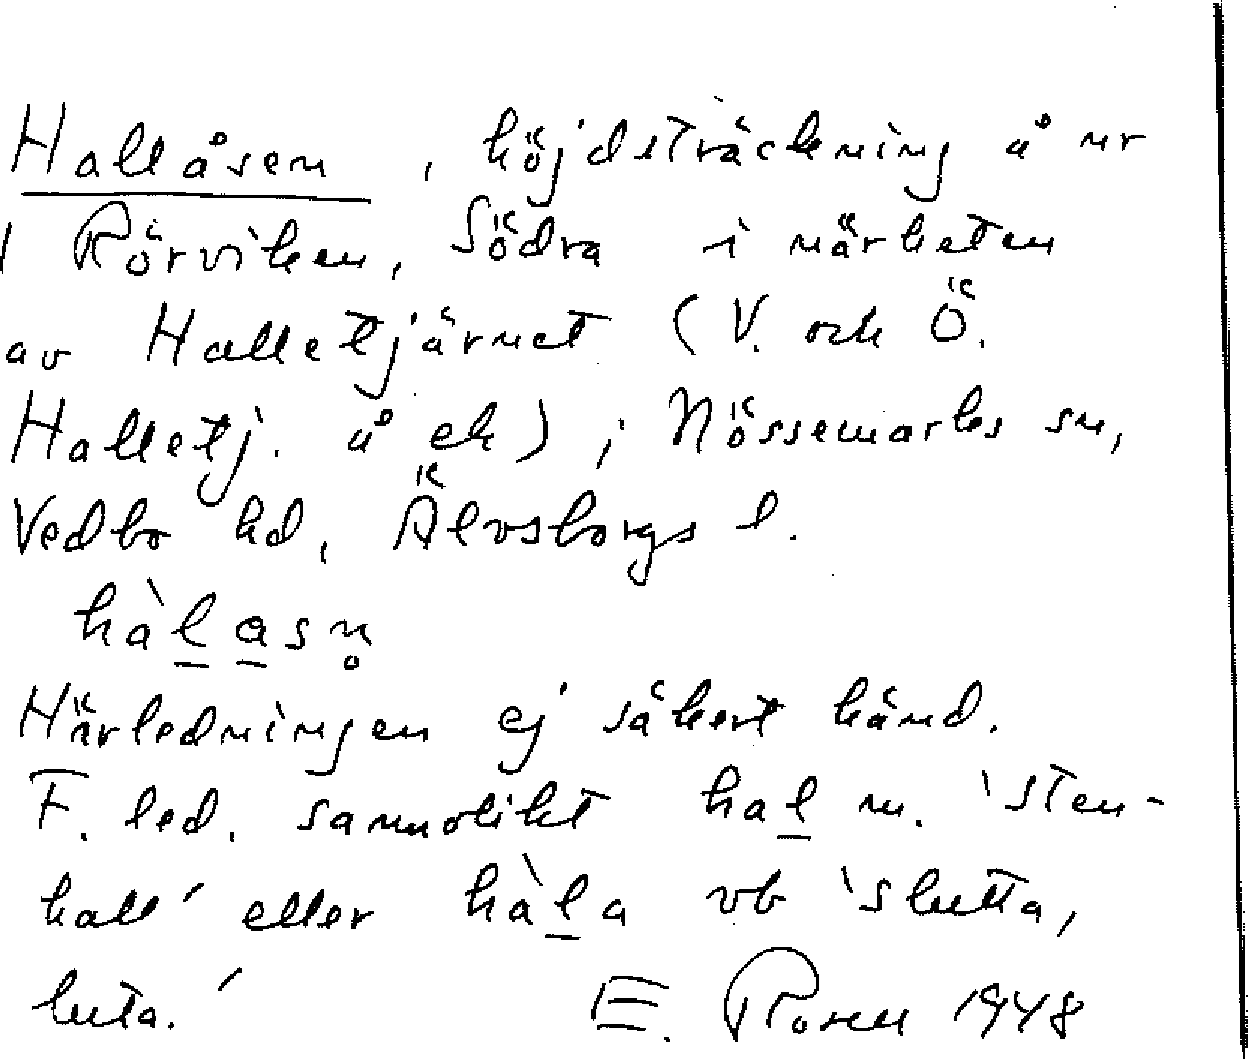 Hallåsen, höjdsträckning å nr
1 Rörviken, Södra i närheten
av Halletjärnet (V. och Ö.
Halletj. å ek), Nössemarks sn,
Vedbo hd, Älvsborgs l.
hàl̲a̲sn̥
Härledningen ej säkert känd.
F. led. sannolikt hal̲ m. 'sten-
hall' eller hàl̲a vb 'slutta,
luta.' E. Rosell 1948